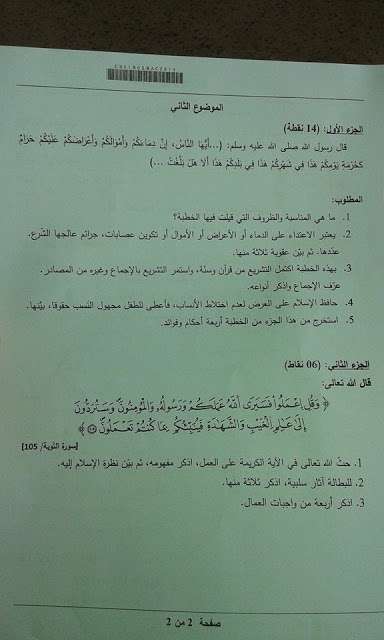 الموضوع الثاني
الجزء الأول: (14 نقطة)
قال رسول الله صلى الله عليه وسلم: (...أَيُّهَا النَّاسُ، إِنَّ دِمَاءَكُمْ وَأَمْوَالَكُمْ وَأَعْرَاضَكُمْ عَلَيْكُمْ حَرَامٌ
كَحُرْمَةِ يَوْمِكُمْ هَذَا فِي شَهْرِكُمْ هَذَا فِي بَلَدِكُمْ هَذَا أَلَا هَلْ بَلَّغْتُ ...)
المطلوب:
1. ما هي المناسبة والظروف التي قيلت فيها الخطبة؟
2. يعتبر الاعتداء على الدماء أو الأعراض أو الأموال أو تكوين عصابات، جرائم عالجها الشّرع.
عدّدها. ثم بيّن عقوبة ثلاثة منها.
3. بهذه الخطبة اكتمل التشريع من قرآن وسنة، واستمر التشريع بالإجماع وغيره من المصادر.
عرّف الإجماع واذكر أنواعه.
4. حافظ الإسلام على العرض لعدم اختلاط الأنساب، فأعطى للطفل مجهول النسب حقوقا، بيّنها.
5. استخرج من هذا الجزء من الخطبة أربعة أحكام وفوائد.
الجزء الثاني: (06 نقاط)
قال الله تعالى:
﴿ وَقُلِ اِعْمَلُواْ فَسَيَرَى اَللَّهُ عَمَلَكُمْ وَرَسُولُهُ وَالْمُومِنُونَ وَسَتُرَدُّونَ
إِلَىٰ عَٰلِمِ اِلْغَيْبِ وَالشَّهَٰدَةِ فَيُنَبِّئُكُم بِمَا كُنتُمْ تَعْمَلُونَ ﴾
[سورة التوبة/ 105]
1. حثّ الله تعالى في الآية الكريمة على العمل، اذكر مفهومه، ثم بيّن نظرة الإسلام إليه.
2. للبطالة آثار سلبية، اذكر ثلاثة منها.
3. اذكر أربعة من واجبات العمال.
صفحة 2 من 2